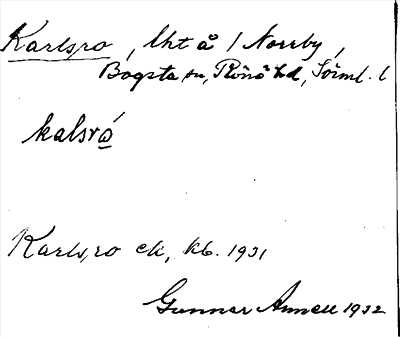 Karlsro, lht å 1 Norrby,
Bogsta sn, Rönö hd, Sörml. l
kalsró
Karlsro ek, kb. 1931
Gunnar Annell 1932